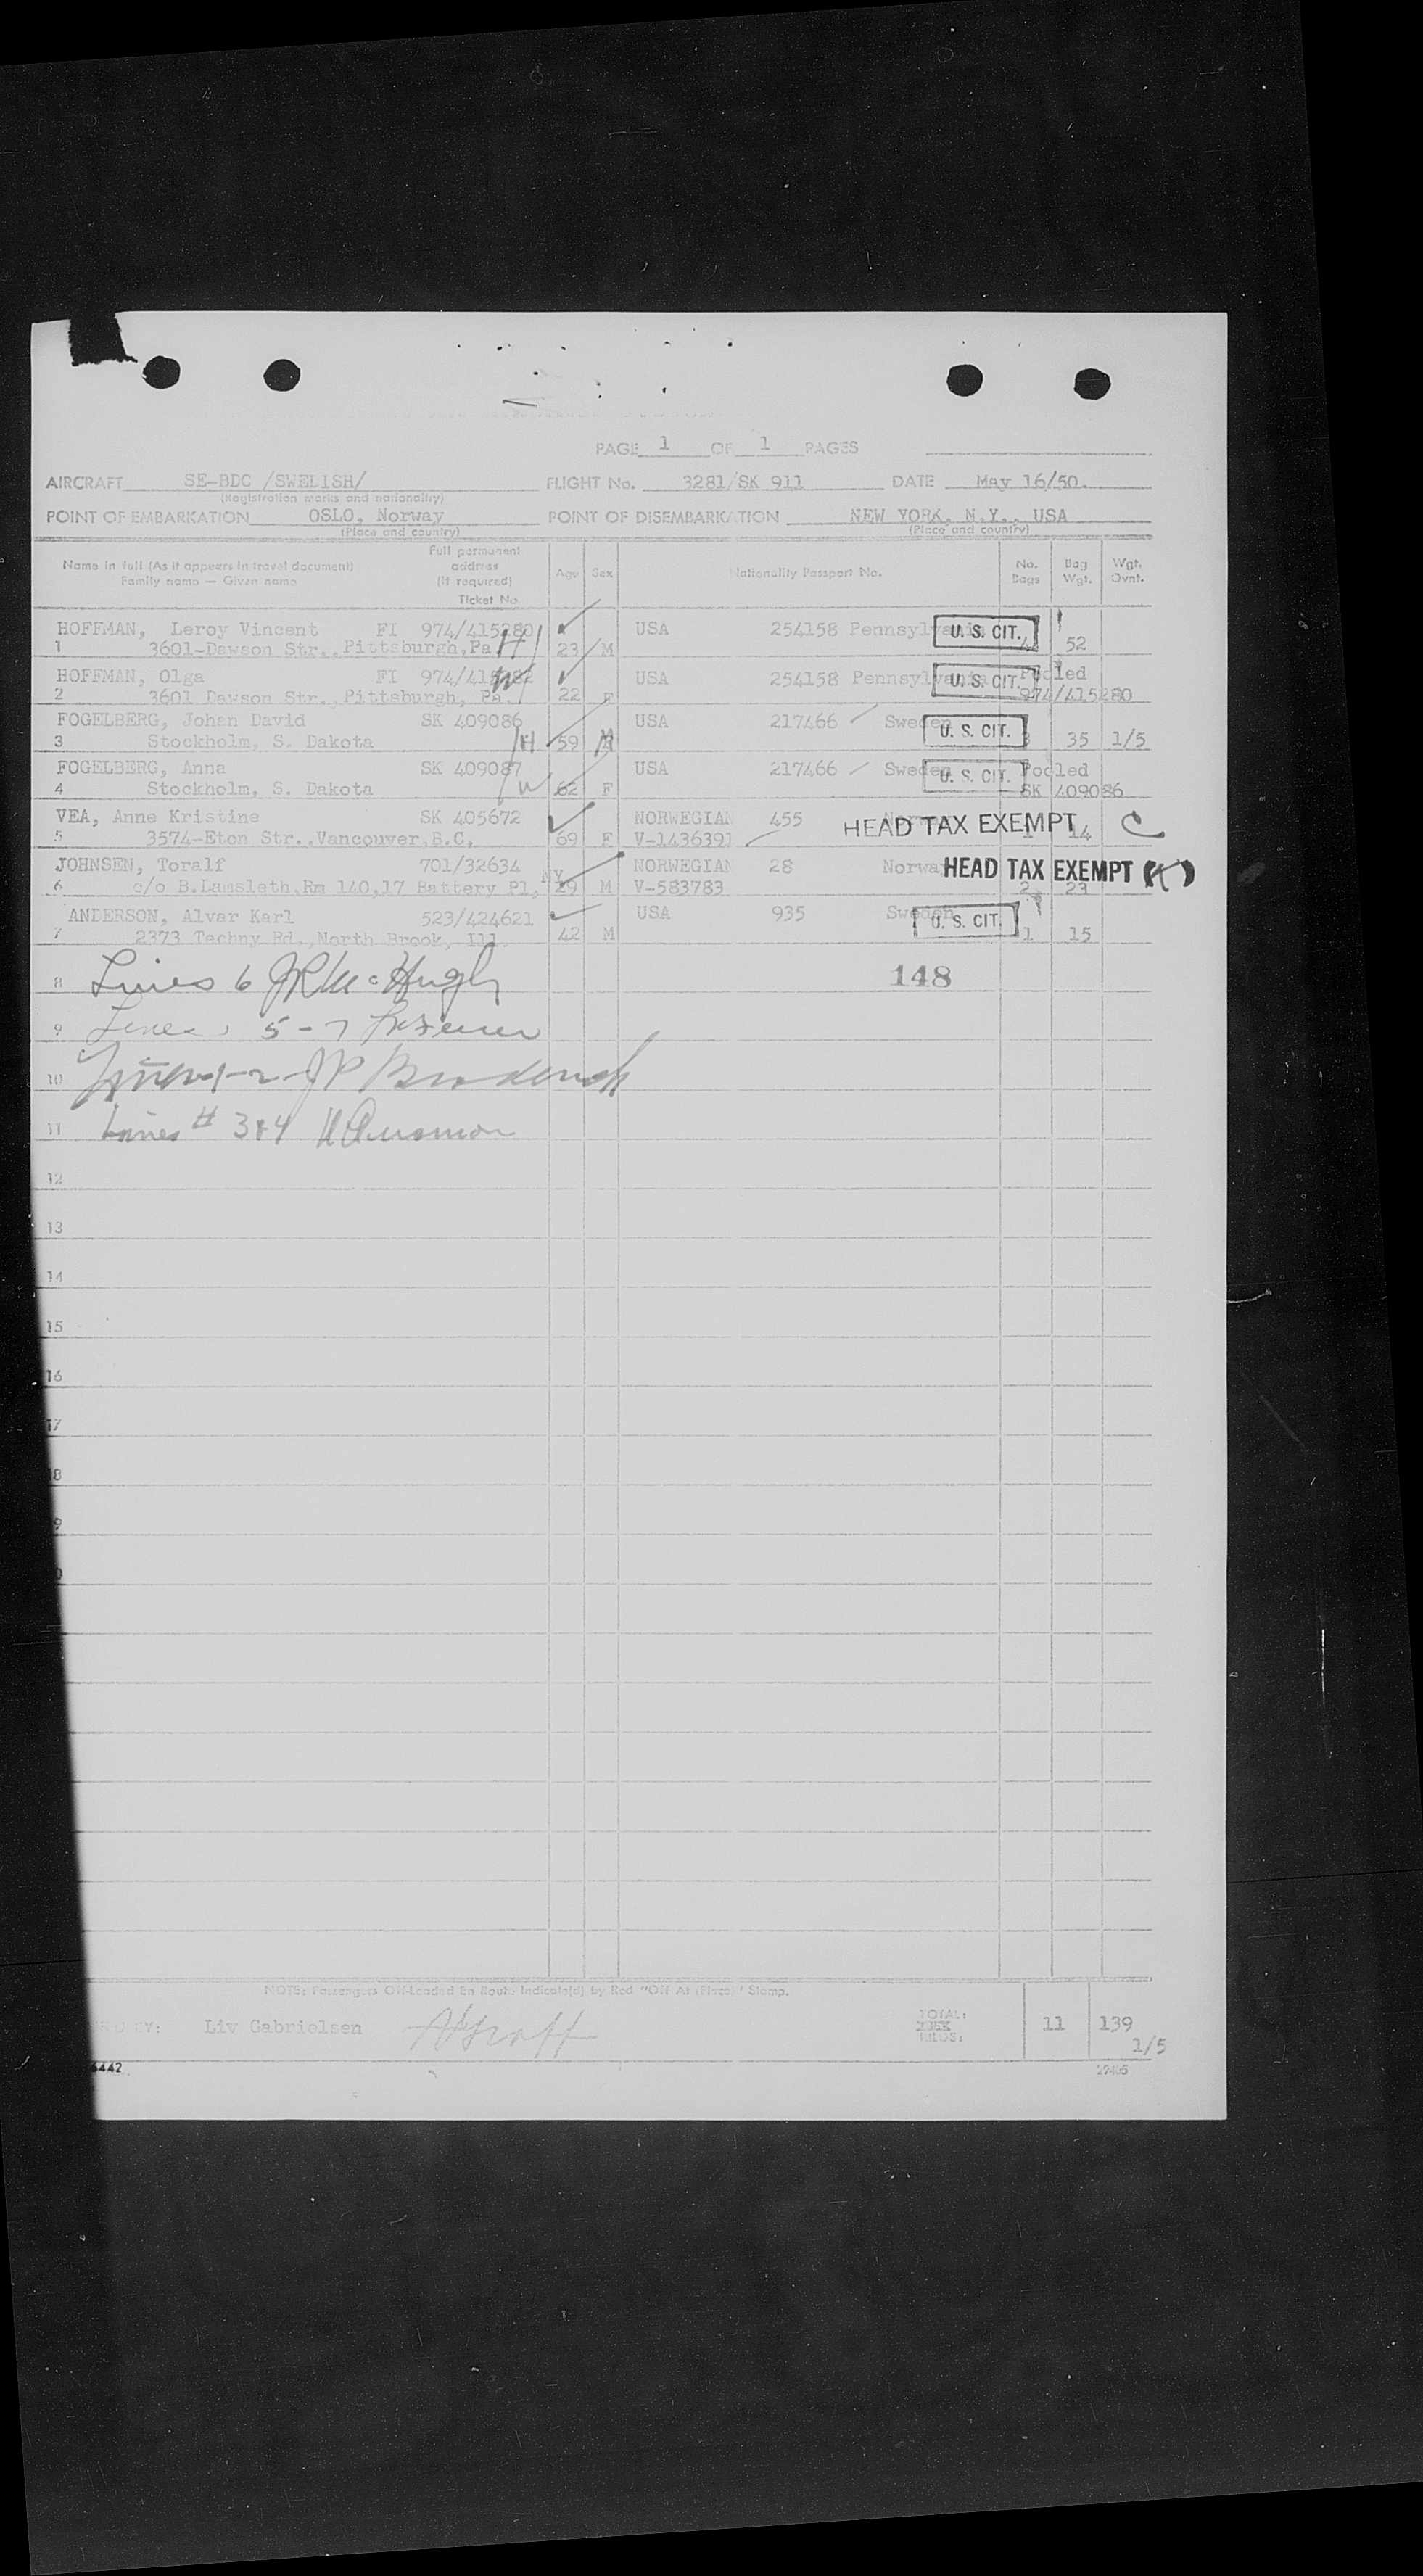 PAGE 1 OF 1 PAGES
AIRCRAFT SE-BDC /SWELISH/ FLIGHT No. 3281/SK 911 DATE May 16/50.
(Registration marks and nationality)
POINT OF EMBARKATION OSLO, Norway POINT OF DISEMBARKATION NEW YORK, N.Y., USA
(Place and country) (Place and country)
Name in full (As it appears in travel document) Family name — Given name Full permanent address (If required) Ticket No. Age Sex Nationality Passport No. No. Bags Bag Wgt. Wgt. Ovnt.
HOFFMAN, Leroy Vincent FI 974/415280 USA 254158 Pennsylvania U. S. CIT.
1 3601-Dawson Str., Pittsburgh, Pa. H 23 M 4 52
HOFFMAN, Olga FI 974/415282 W USA 254158 Pennsylvania U. S. CIT. Pooled
2 3601 Dawson Str., Pittsburgh, Pa. 22 F 974/415280
FOGELBERG, Johan David SK 409086 USA 217466 Sweden U. S. CIT.
3 Stockholm, S. Dakota H 59 M 3 35 1/5
FOGELBERG, Anna SK 409087 USA 217466 Sweden U. S. CIT. Pooled
4 Stockholm, S. Dakota W 62 F SK 409086
VEA, Anne Kristine SK 405672 NORWEGIAN 455 HEAD TAX EXEMPT C
5 3574-Eton Str., Vancouver, B.C. 69 F V-1436391 1 14
JOHNSEN, Toralf 701/32634 NORWEGIAN 28 Norway HEAD TAX EXEMPT
6 c/o B.Lamsleth, Rm 140, 17 Battery Pl, NY 29 M V-583783 2 23
ANDERSON, Alvar Karl 523/424621 USA 935 Sweden U. S. CIT.
7 2373 Techny Rd., North Brook, Ill. 42 M 1 15
8 Lines 6 JR McHugh 148
9 Lines 5-7
10 1-2 JP Broderick
11 Lines # 3&4
12
13
14
15
16
17
18
9
NOTE: Passengers Off-Loaded En Route Indicate(d) by Red "Off At (Place)" Stamp.
BY: Liv Gabrielsen TOTAL: KILOS: 11 139
1/5
6442 22405